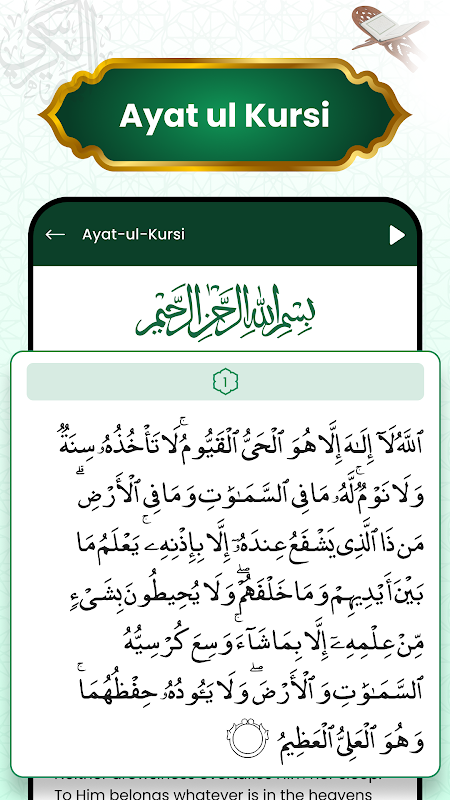 Ayat ul Kursi
Ayat-ul-Kursi
بِسْمِ اللهِ الرَّحْمٰنِ الرَّحِيْمِ
1
ٱللَّهُ لَآ إِلَٰهَ إِلَّا هُوَ ٱلْحَىُّ ٱلْقَيُّومُ ۚ لَا تَأْخُذُهُۥ سِنَةٌ
وَلَا نَوْمٌ ۚ لَّهُۥ مَا فِى ٱلسَّمَٰوَٰتِ وَمَا فِى ٱلْأَرْضِ ۗ
مَن ذَا ٱلَّذِى يَشْفَعُ عِندَهُۥٓ إِلَّا بِإِذْنِهِۦ ۚ يَعْلَمُ مَا
بَيْنَ أَيْدِيهِمْ وَمَا خَلْفَهُمْ ۖ وَلَا يُحِيطُونَ بِشَىْءٍ
مِّنْ عِلْمِهِۦٓ إِلَّا بِمَا شَآءَ ۚ وَسِعَ كُرْسِيُّهُ
ٱلسَّمَٰوَٰتِ وَٱلْأَرْضَ ۖ وَلَا يَـُٔودُهُۥ حِفْظُهُمَا ۚ
وَهُوَ ٱلْعَلِىُّ ٱلْعَظِيمُ
To Him belongs whatever is in the heavens